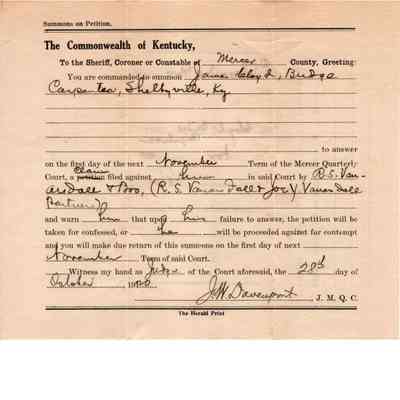 Summons on Petition.
The Commonwealth of Kentucky,
To the Sheriff, Coroner or Constable of Mercer County, Greeting:
You are commanded to summon James Lloyd, Bridge
Carpenter, Shelbyville, Ky
to answer
on the first day of the next November Term of the Mercer Quarterly
Court, a Claim petition filed against him in said Court by R. S. Van-
arsdall & Bro, (R. S. Vanarsdall & Joe Vanarsdall
Partners)
and warn him that upon his failure to answer, the petition will be
taken for confessed, or he will be proceeded against for contempt
and you will make due return of this summons on the first day of next
November Term of said Court.
Witness my hand as Judge of the Court aforesaid, the 28th day of
October 19
J. W. Davenport J. M. Q. C.
The Herald Print